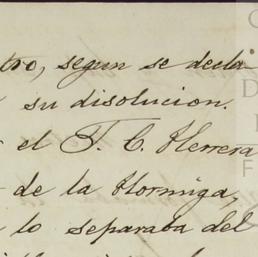 tro, segun se decla
su disolucion.
el T. C. Herrera
de la Hormiga,
lo separaba del